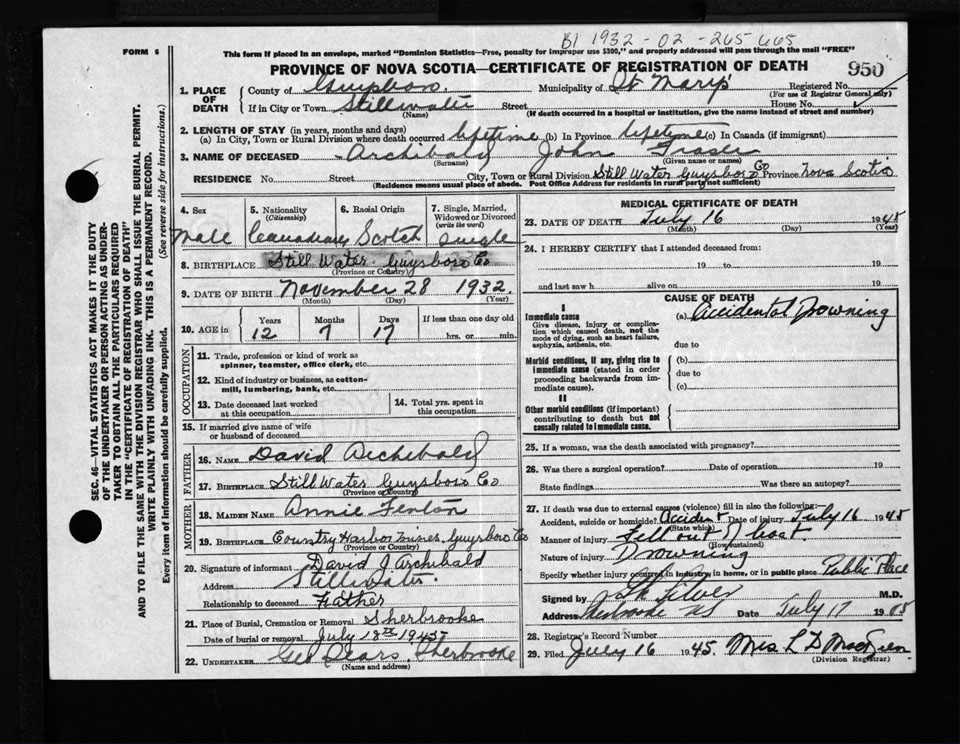 B1 1932 - 02 - 265 665
FORM 6
This form if placed in an envelope, marked "Dominion Statistics—Free, penalty for improper use $300," and properly addressed will pass through the mail "FREE"
PROVINCE OF NOVA SCOTIA—CERTIFICATE OF REGISTRATION OF DEATH
950
SEC. 46—VITAL STATISTICS ACT MAKES IT THE DUTY
OF THE UNDERTAKER OR PERSON ACTING AS UNDER-
TAKER TO OBTAIN ALL THE PARTICULARS REQUIRED
IN THE "CERTIFICATE OF REGISTRATION OF DEATH"
AND TO FILE THE SAME WITH THE DIVISION REGISTRAR WHO SHALL ISSUE THE BURIAL PERMIT.
WRITE PLAINLY WITH UNFADING INK. THIS IS A PERMANENT RECORD.
Every item of information should be carefully supplied. (See reverse side for instructions.)
1. PLACE OF DEATH
County of Guysboro. Municipality of St Mary's Registered No.
(For use of Registrar General only)
If in City or Town Stillwater Street House No.
(Name) (If death occurred in a hospital or institution, give the name instead of street and number)
2. LENGTH OF STAY (in years, months and days)
(a) In City, Town or Rural Division where death occurred lifetime (b) In Province lifetime (c) In Canada (if immigrant)
3. NAME OF DECEASED Archibald John Fraser
(Surname) (Given name or names)
RESIDENCE No. Street City, Town or Rural Division Still Water Guysboro Co Province Nova Scotia
(Residence means usual place of abode. Post Office Address for residents in rural parts not sufficient)
4. Sex Male
5. Nationality (Citizenship) Canadian
6. Racial Origin Scotch
7. Single, Married, Widowed or Divorced (write the word) single
8. BIRTHPLACE Still Water Guysboro Co
(Province or Country)
9. DATE OF BIRTH November 28 1932.
(Month) (Day) (Year)
10. AGE in Years Months Days If less than one day old
12 7 17 hrs. or min.
OCCUPATION
11. Trade, profession or kind of work as spinner, teamster, office clerk, etc.
12. Kind of industry or business, as cotton-mill, lumbering, bank, etc.
13. Date deceased last worked at this occupation
14. Total yrs. spent in this occupation
15. If married give name of wife or husband of deceased
FATHER
16. NAME David Archibald
17. BIRTHPLACE Still Water Guysboro Co
(Province or Country)
MOTHER
18. MAIDEN NAME Annie Fenton
19. BIRTHPLACE Country Harbor Mines. Guysboro Co
(Province or Country)
20. Signature of informant David J Archibald
Address Stillwater.
Relationship to deceased Father
21. Place of Burial, Cremation or Removal Sherbrooke
Date of burial or removal July 18th 1945
22. UNDERTAKER Geo Pears, Sherbrooke
(Name and address)
MEDICAL CERTIFICATE OF DEATH
23. DATE OF DEATH July 16 1945
(Month) (Day) (Year)
24. I HEREBY CERTIFY that I attended deceased from:
19 to 19
and last saw h alive on 19
CAUSE OF DEATH
I
Immediate cause (a) Accidental Drowning
Give disease, injury or complication which caused death, not the mode of dying, such as heart failure, asphyxia, asthenia, etc.
due to
Morbid conditions, if any, giving rise to immediate cause (stated in order proceeding backwards from immediate cause).
(b)
due to
(c)
II
Other morbid conditions (if important) contributing to death but not causally related to immediate cause.
25. If a woman, was the death associated with pregnancy?
26. Was there a surgical operation? Date of operation 19
State findings Was there an autopsy?
27. If death was due to external causes (violence) fill in also the following:
Accident, suicide or homicide? Accident Date of injury July 16 1945
(State which)
Manner of injury Fell out of boat.
(How sustained)
Nature of injury Drowning
Specify whether injury occurred in industry, in home, or in public place Public Place
Signed by Silver M.D.
Address Sherbrooke NS Date July 17 19
28. Registrar's Record Number
29. Filed July 16 1945. Mrs L D
(Division Registrar)